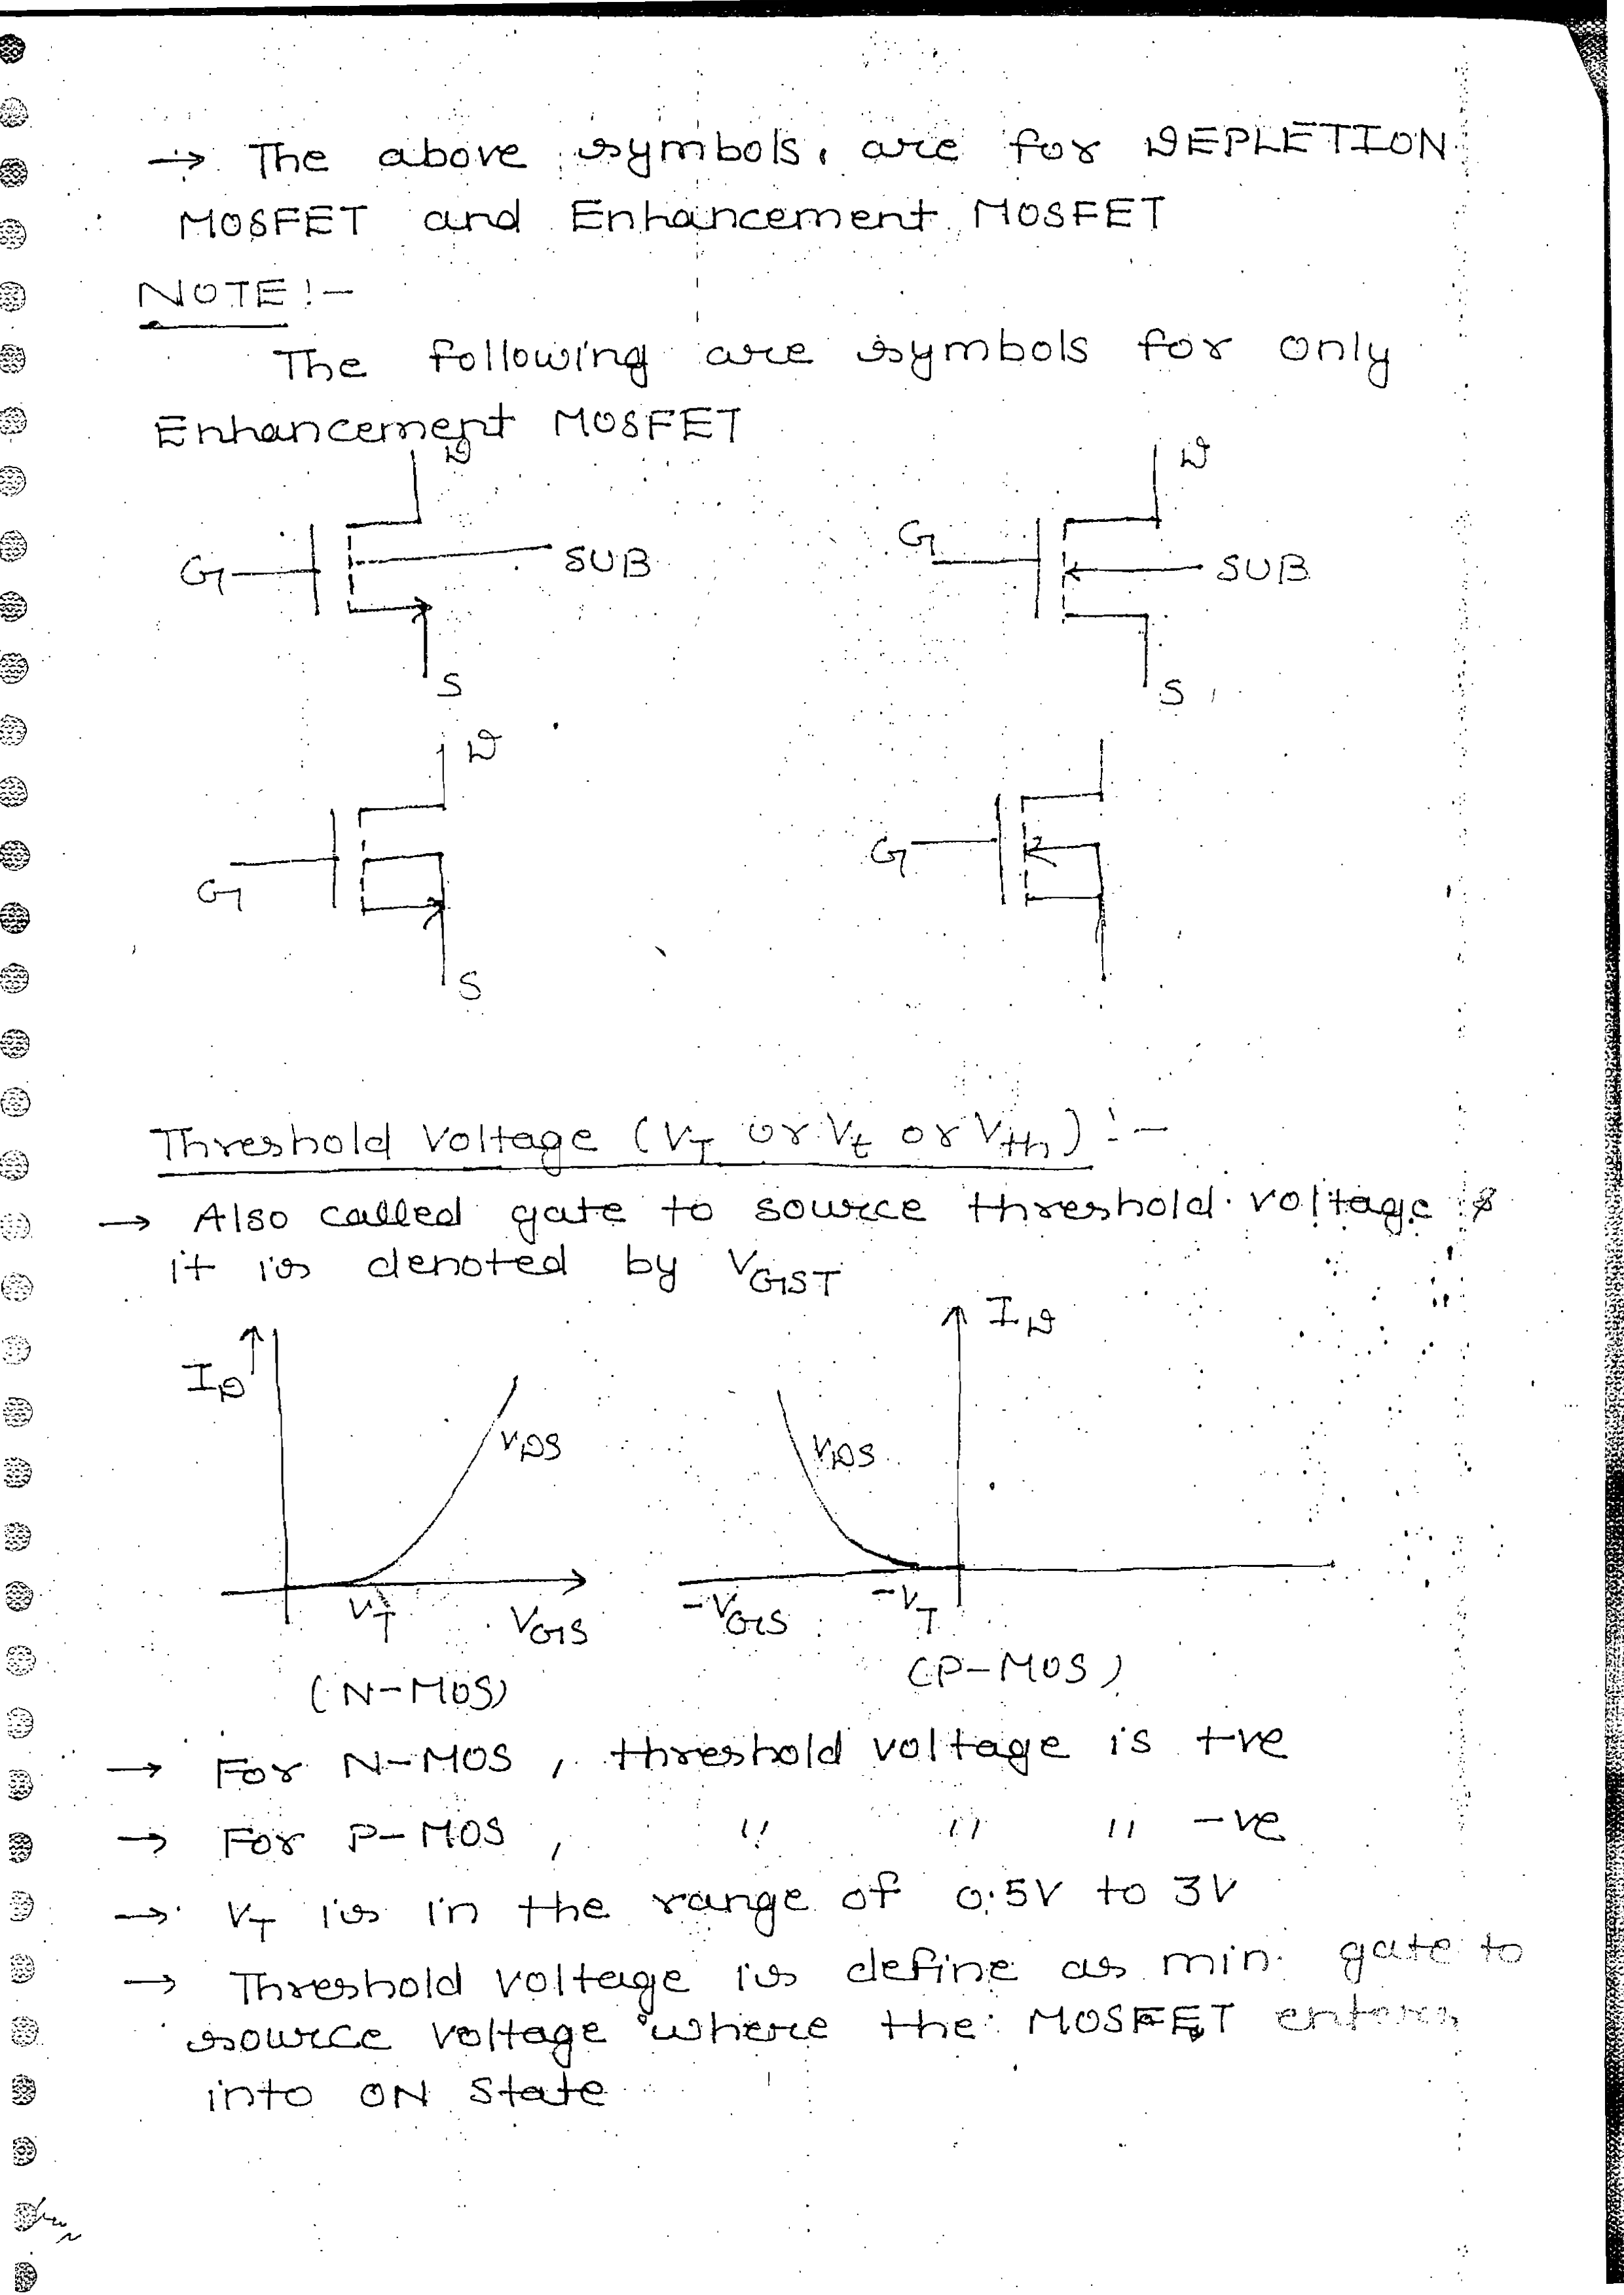 → The above symbols, are for DEPLETION
MOSFET and Enhancement MOSFET
NOTE :-
The following are symbols for only
Enhancement MOSFET
D D
G SUB G SUB
S S
D
G G
S
Threshold Voltage (VT or Vt or Vth) :-
→ Also called gate to source threshold voltage &
it is denoted by VGST
ID ID
VDS VDS
VT VGS -VGS -VT
(N-MOS) (P-MOS)
→ For N-MOS , threshold voltage is +ve
→ For P-MOS , " " " -ve
→ VT is in the range of 0.5V to 3V
→ Threshold voltage is define as min. gate to
source voltage where the MOSFET enters
into ON state